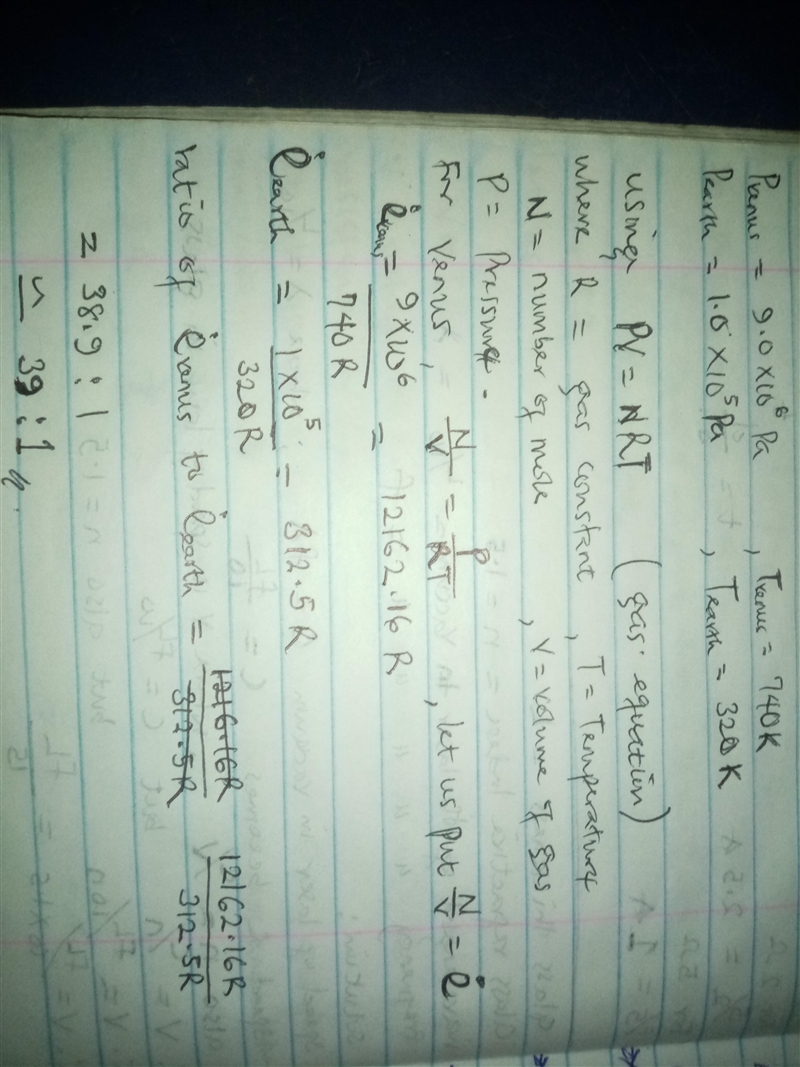 Pvenus = 9.0 × 10⁶ Pa , Tvenus = 740K
Pearth = 1.0 × 10⁵ Pa , Tearth = 320K
using PV = NRT (gas equation)
where R = gas constant , T = Temperature
N = number of mole , V = volume of gas
P = Pressure.
For Venus, N/V = P/RT , let us put N/V = ė
ėvenus = 9×10⁶/740R = 12162.16 R
ėearth = 1×10⁵/320R = 312.5 R
ratio of ėvenus to ėearth = 1216.16R/312.5R 12162.16R/312.5R
= 38.9 : 1
≃ 39 : 1